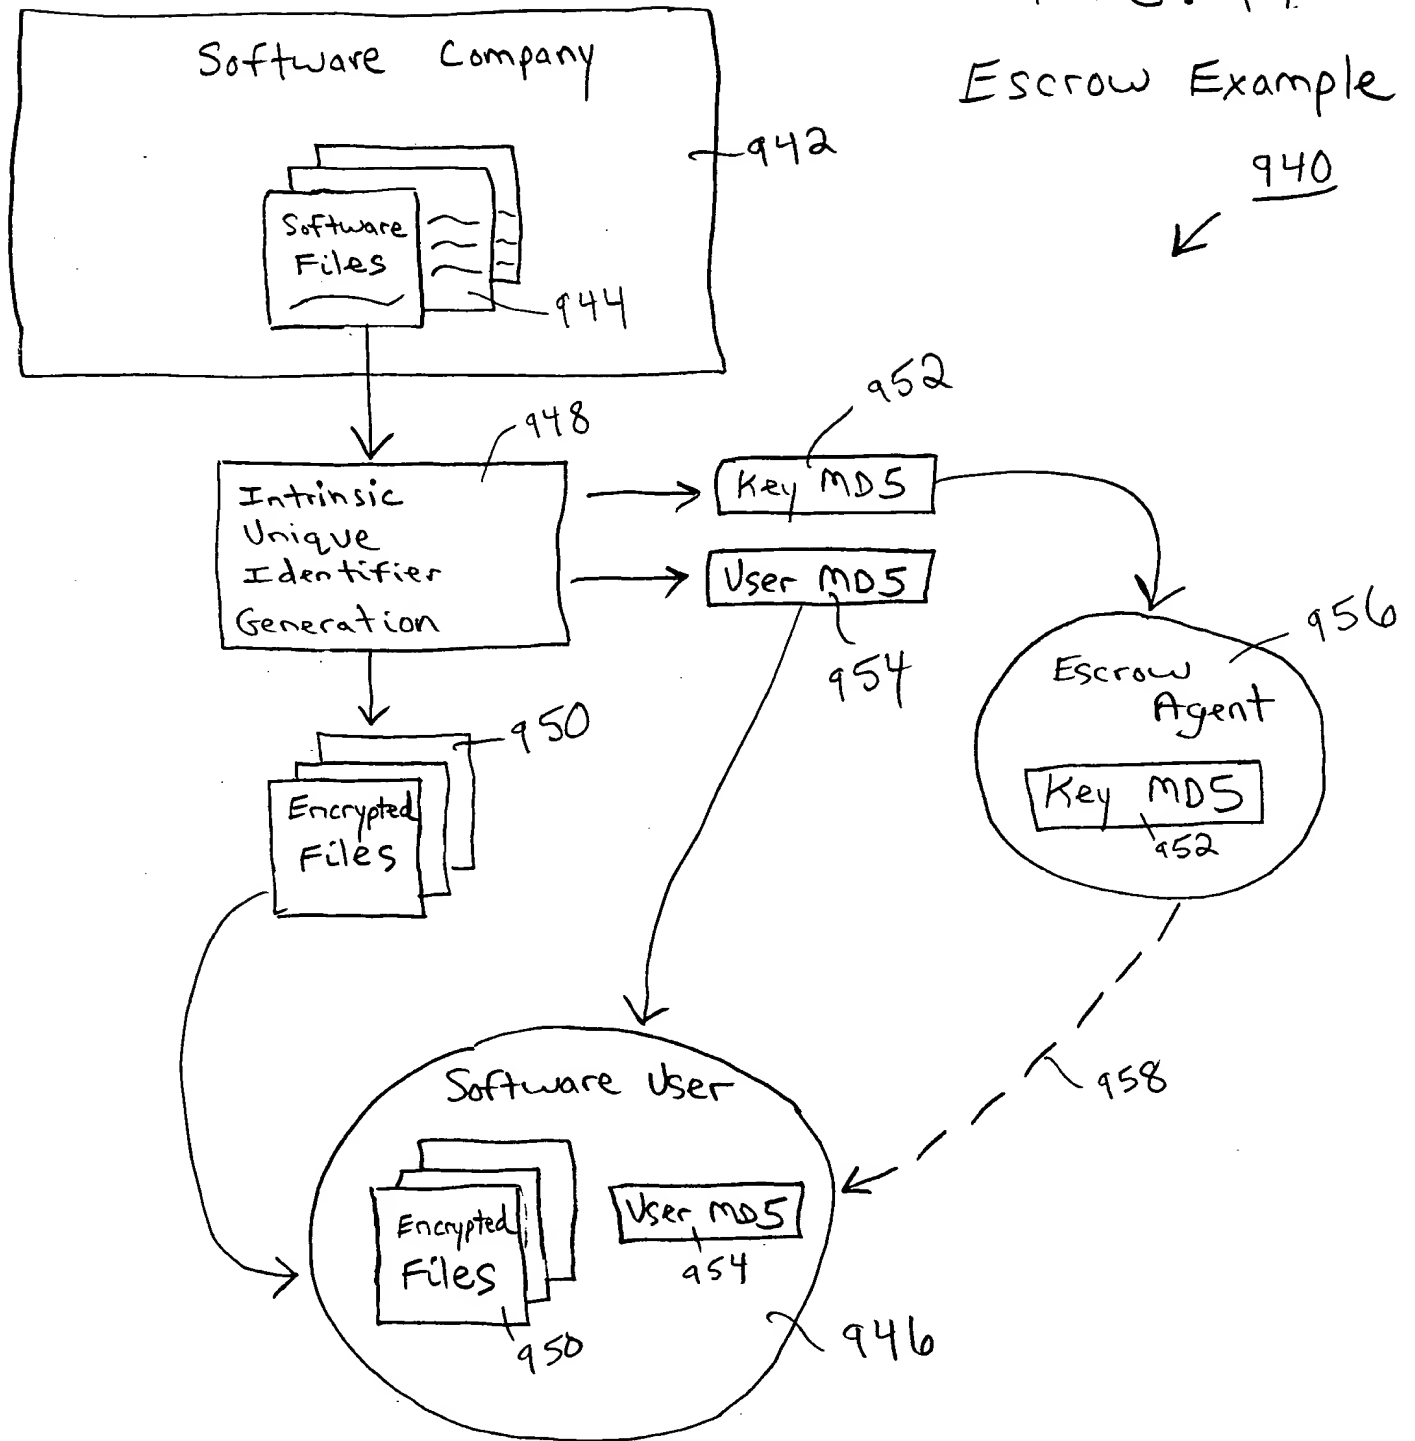 Software Company
Escrow Example
940
942
Software
Files
944
948
952
Intrinsic
Unique
Identifier
Generation
Key MD5
User MD5
954
956
Escrow
Agent
Key MD5
952
950
Encrypted
Files
958
Software User
Encrypted
Files
950
User MD5
954
946